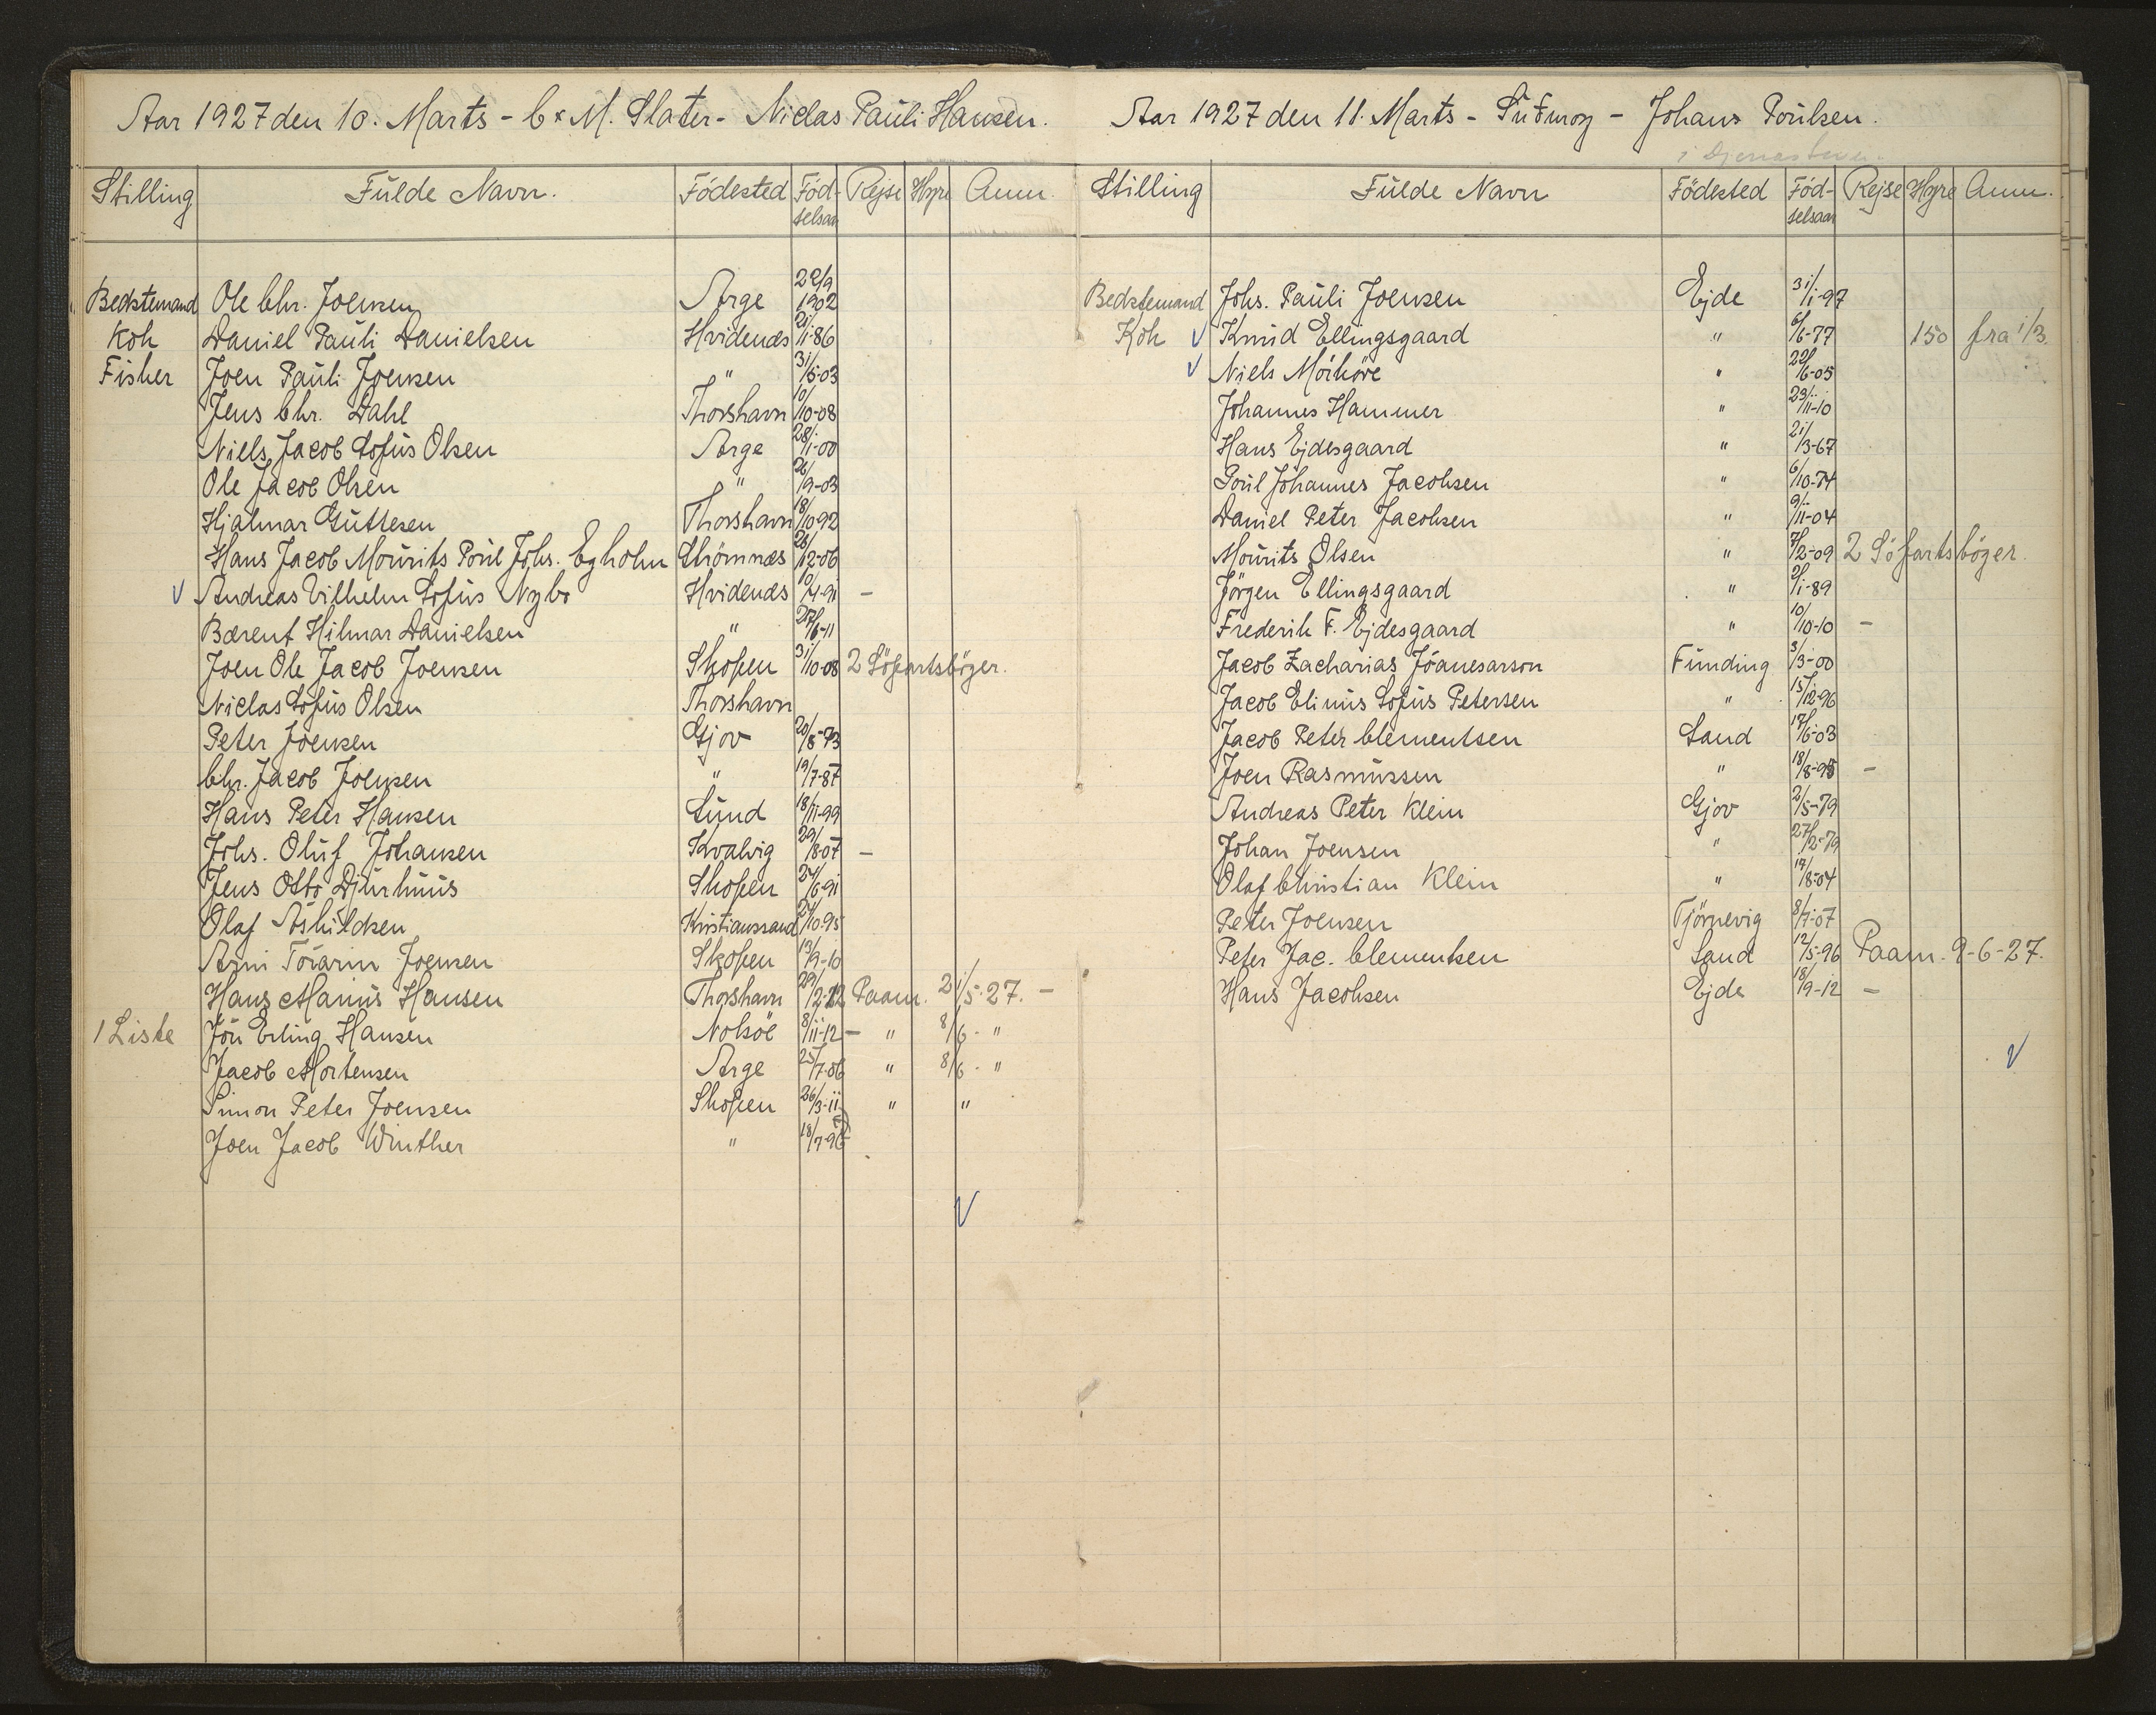 Aar 1927 den 10. Marts - C & M. Slater - Niclas Pauli Hansen.
Stilling Fulde Navn. Födested Födselsaar Rejse Hyre Anm.
Bedstemand Ole Chr. Joensen Arge 22/9 1902
Kok Daniel Pauli Danielsen Hvidenæs 21/1-86
Fisker Joen Pauli Joensen " 31/5-03
Jens Chr. Dahl Thorshavn 10/10-08
Niels Jacob Sofus Olsen Arge 28/1-00
Ole Jacob Olsen " 26/9-03
Hjalmar Guttesen Thorshavn 18/10-92
Hans Jacob Mourits Poul Johs. Egholm Strömnæs 26/12-06
√ Andreas Vilhelm Sofus Nybo Hvidenæs 10/4-91 -
Bærent Hilmar Danielsen " 27/6-11
Joen Ole Jacob Joensen Skopen 31/10-08 2 Söfartsböger.
Niclas Sofus Olsen Thorshavn
Peter Joensen Gjov 20/8-73
Chr. Jacob Joensen " 19/7-87
Hans Peter Hansen Sund 18/11-99
Johs. Oluf Johansen Kvalvig 29/8-07 -
Jens Otto Djurhuus Skopen 24/6-91
Olaf Kristianssand 27/10-95
Arni Tórarin Joensen Skopen 13/9-10
Hans Marius Hansen Thorshavn 29/2-12 Paam. 21/5-27. -
1 Liste Jón Erling Hansen Nolsöe 8/11-12 - " 8/6 - "
Jacob Mortensen Arge 25/7-06 " 8/6 - "
Simon Peter Joensen Skopen 26/3-11 " "
Joen Jacob Winther " 18/7-96
√
Aar 1927 den 11. Marts - Suðuroy - Johans Poulsen.
Stilling Fulde Navn Födested Födselsaar Rejse Hyre Anm.
Bedstemand Johs. Pauli Joensen Ejde 31/1-97
Kok √ Knud Ellingsgaard " 6/6-77 150 fra 1/3.
√ Niels Mörköre " 22/6-05
Johannes Hammer " 23/11-10
Hans Ejdesgaard " 21/3-67
Poul Johannes Jacobsen " 6/10-74
Daniel Peter Jacobsen " 9/11-04
Mourits Olsen " 7/2-09 2 Söfartsböger.
Jörgen Ellingsgaard " 2/1-89
Frederik F. Ejdesgaard " 10/10-10 -
Jacob Zacharias Jóanesarson Funding 3/3-00
Jacob Elinus Sofus Petersen " 15/12-96
Jacob Peter Clementsen Sand 17/6-03
Joen Rasmussen " 18/8-95 -
Andreas Peter Klein Gjov 2/5-79
Johan Joensen " 27/2-79
Olaf Christian Klein " 19/8-04
Peter Joensen Tjörnevig 8/7-07
Peter Jac. Clementsen Sand 12/5-96 Paam. 9-6-27.
Hans Jacobsen Ejde 18/9-12 -
√